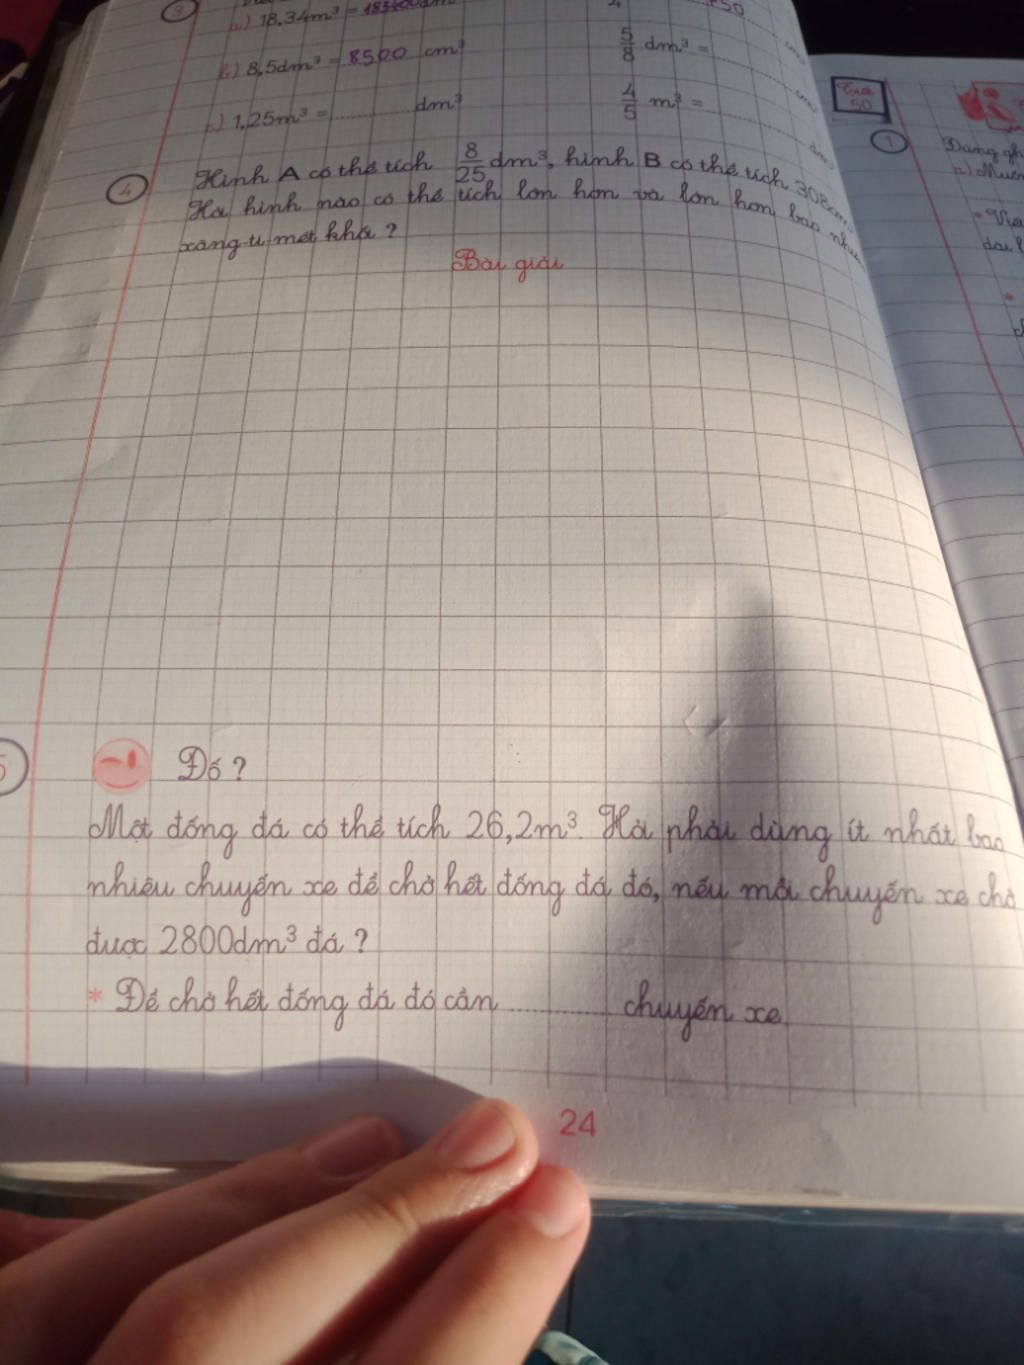 3
a) 18,34m³ = 183400dm
50
b) 8,5dm³ = 8500 cm³
5/8 dm³ = ............ cm³
c) 1,25m³ = ............ dm³
4/5 m³ = ............ dm³
4 Hình A có thể tích 8/25 dm³, hình B có thể tích 308cm³.
Hỏi hình nào có thể tích lớn hơn và lớn hơn bao nhiêu
xăng-ti-mét khối ?
Bài giải
5 Đố ?
Một đống đá có thể tích 26,2m³. Hỏi phải dùng ít nhất bao
nhiêu chuyến xe để chở hết đống đá đó, nếu mỗi chuyến xe chở
được 2800dm³ đá ?
* Để chở hết đống đá đó cần ............ chuyến xe.
24
Tiết
50
1
Dùng gh
a) Mườ
* Viế
*